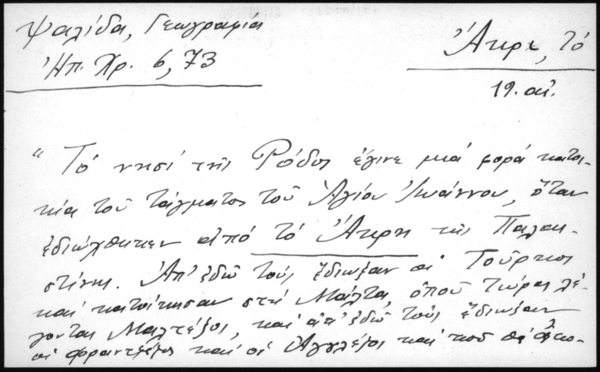 Ψαλίδα, Γεωγραφία
Ἠπ. Χρ. 6, 73
Ἄκρη, τό
19. αἰ.
"Τό νησί τῆς Ρόδος ἔγινε μιά φορά κατοι-
κία τοῦ τάγματος τοῦ Ἁγίου Ἰωάννου, ὅταν
ἐδιώχθηκεν ἀπό τό Ἄκρη τῆς Παλαι-
στίνης. Ἀπ' ἐδῶ τούς ἔδιωξαν οἱ Τοῦρκοι
καί κατοίκησαν στή Μάλτα, ὁποῦ τώρα λέ-
γονται Μαλτέζοι, καί ἀπ' ἐδῶ τούς ἔδιωξαν
οἱ φραντζέζοι καί οἱ Ἀγγλέζοι καί ποῦ θά